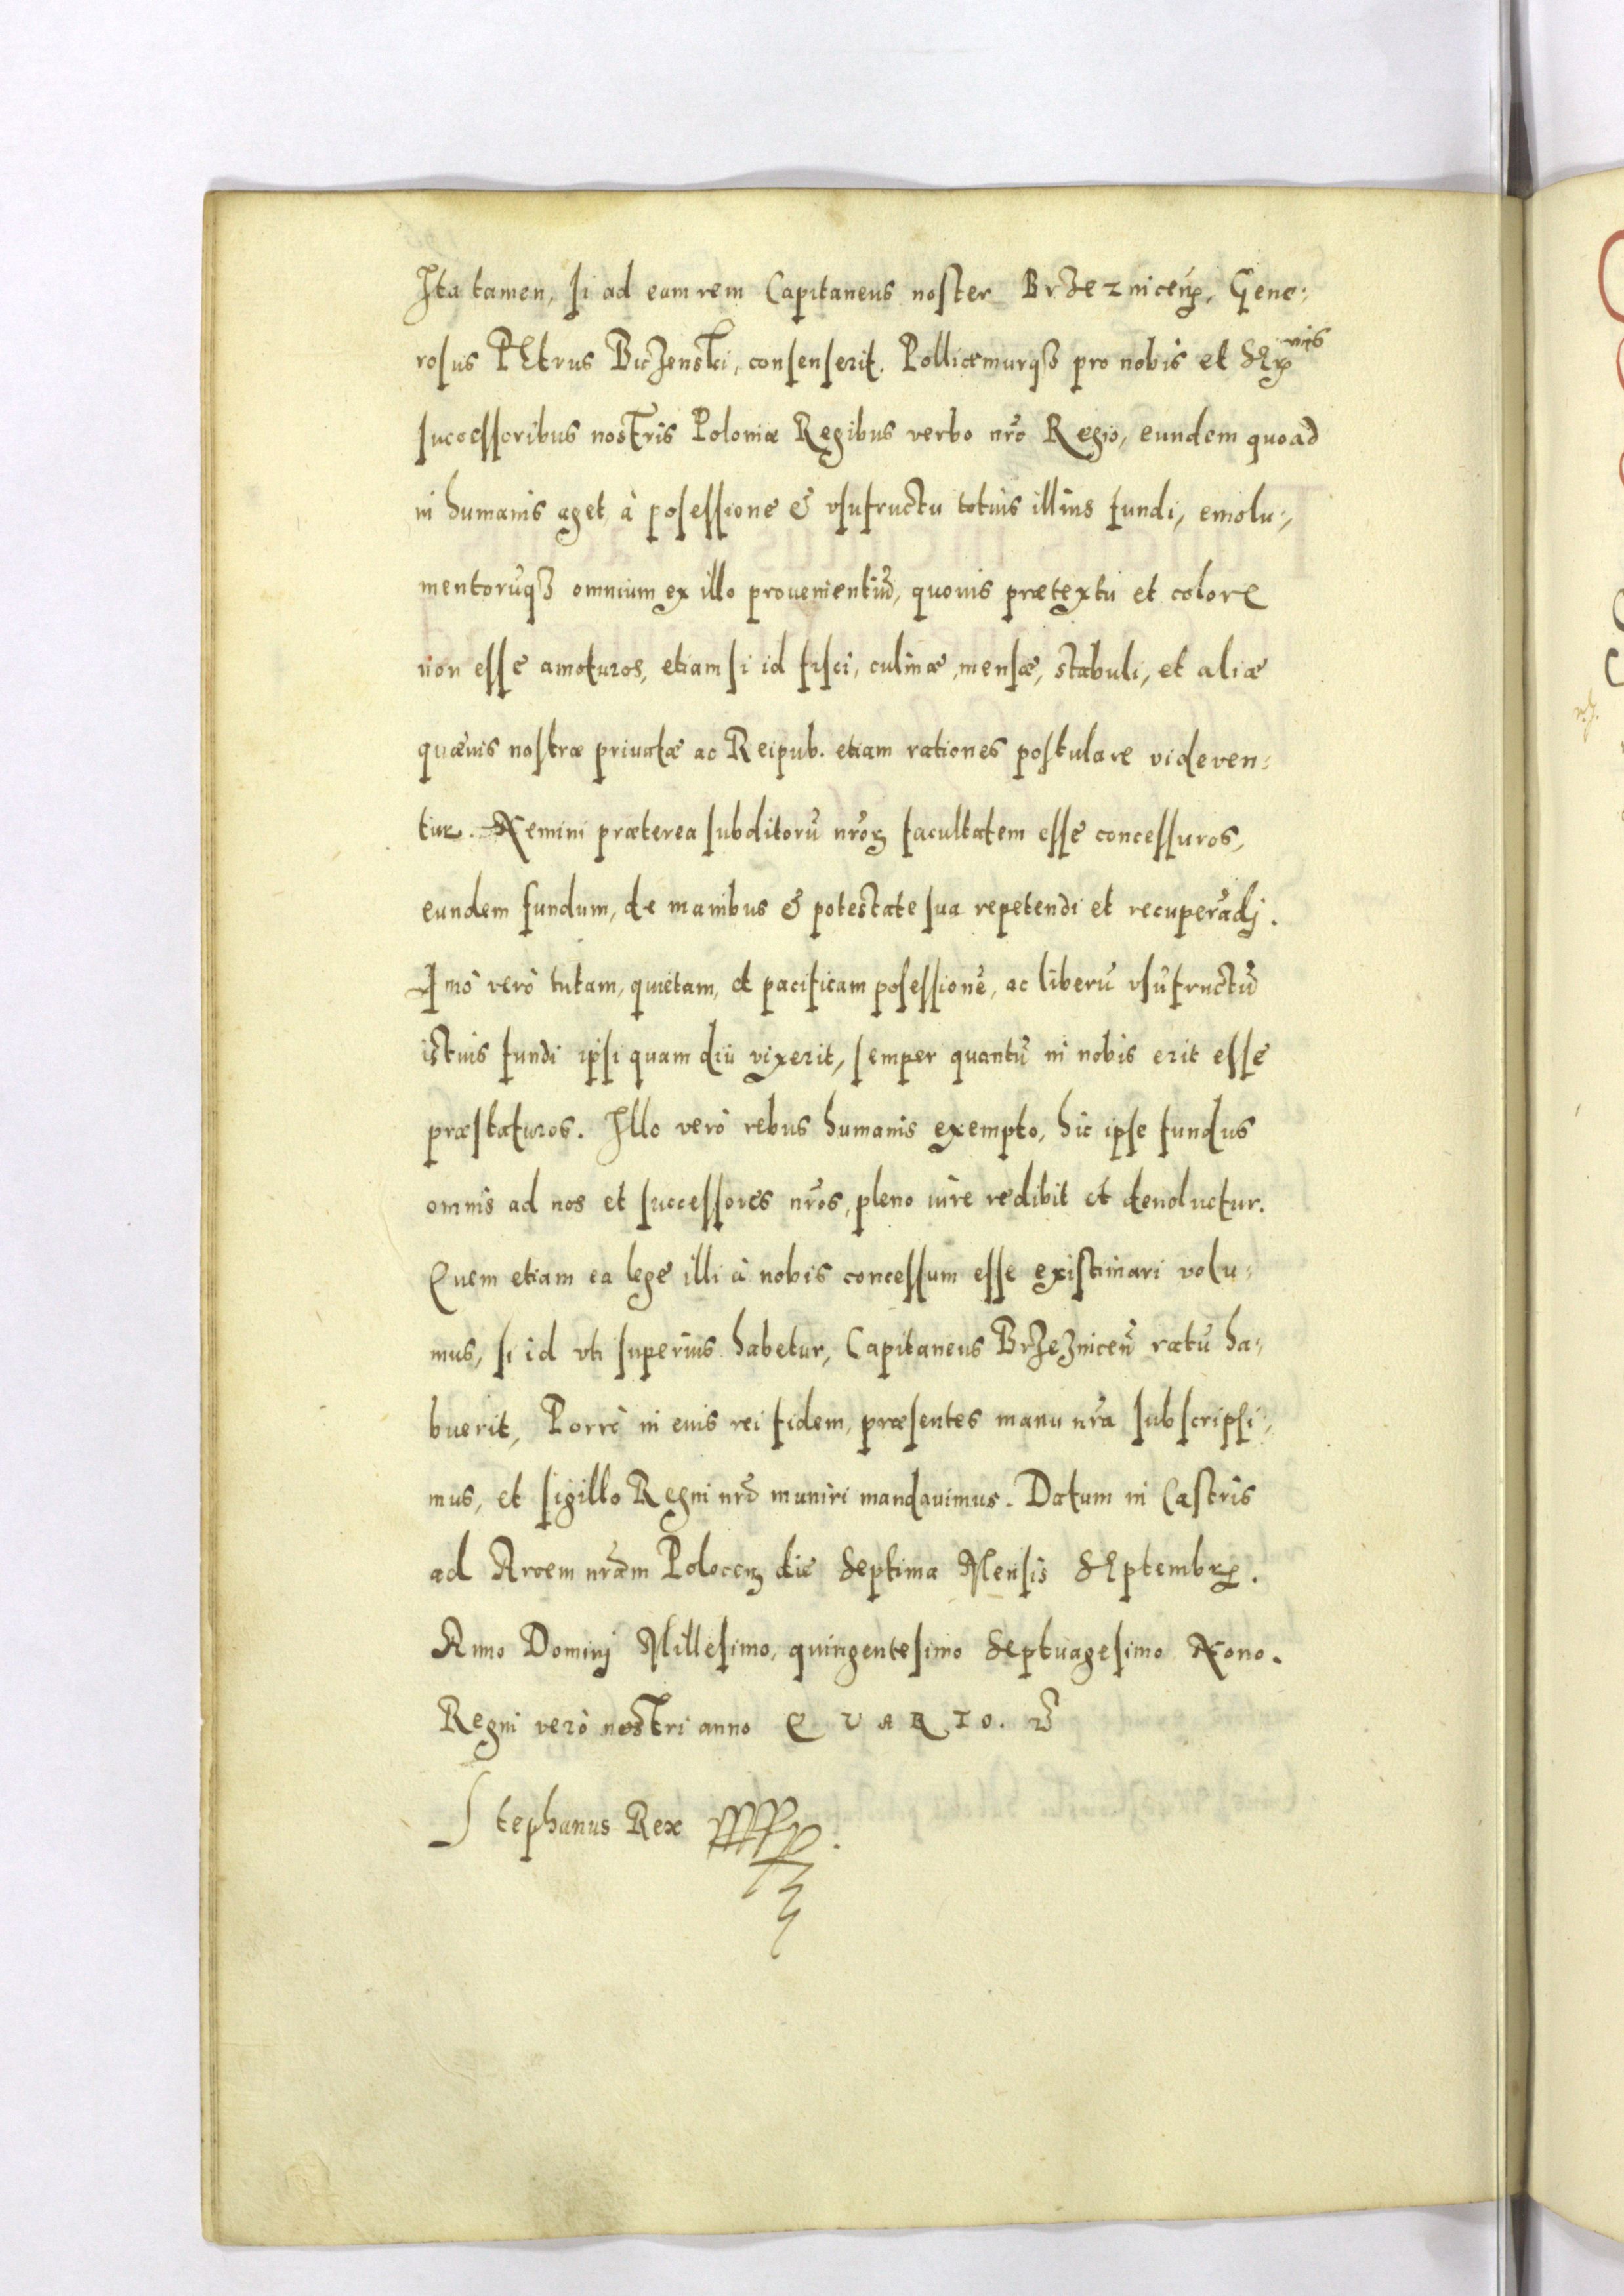 Ita tamen, si ad eam rem Capitaneus noster Brzeznicen̄, Gene:
rosus PEtrus Biczenski, consenserit. Pollicemurqȝ pro nobis et Ser
nis
successoribus nostris Poloniæ Regibus verbo nr̄o Regio, eundem quoad
in humanis aget, à posessione & vsufructu totius illius fundi, emolu:,
mentorūqȝ omnium ex illo prouenientiū, quouis prætextu et colore
non esse amoturos, etiam si id fisci, culinæ, mensæ, stabuli, et aliæ
quæuis nostræ priuatæ ac Reipub. etiam rationes postulare videren:
tur. Nemini præterea subditorū nr̄oꝝ facultatem esse concessuros,
eundem fundum, de manibus & potestate sua repetendi et recuperādj.
Imò verò tutam, quietam, et pacificam posessionē, ac liberū vsūfructū
istuis fundi ipsi quam diù vixerit, semper quantū in nobis erit esse
præstaturos. Illo verò rebus humanis exempto, hic ipse fundus
omnis ad nos et successores nr̄os, pleno iure redibit et deuoluetur.
Quem etiam ea lege illi à nobis concessum esse existimari volu:
mus, si id vti superius habetur, Capitaneus Brzeznicen̄ ratū ha:
buerit, Porrò in euis rei fidem, præsentes manu nr̄a subscripsi:,
mus, et sigillo Regni nr̄i muniri mandauimus. Datum in Castris
ad Arcem nr̄am Polocen̄ die Septima Mensis SEptembr.
Anno Dominj Millesimo, quingentesimo Septuagesimo Nono.
Regni verò nostri anno QVARTO.
Stephanus Rex